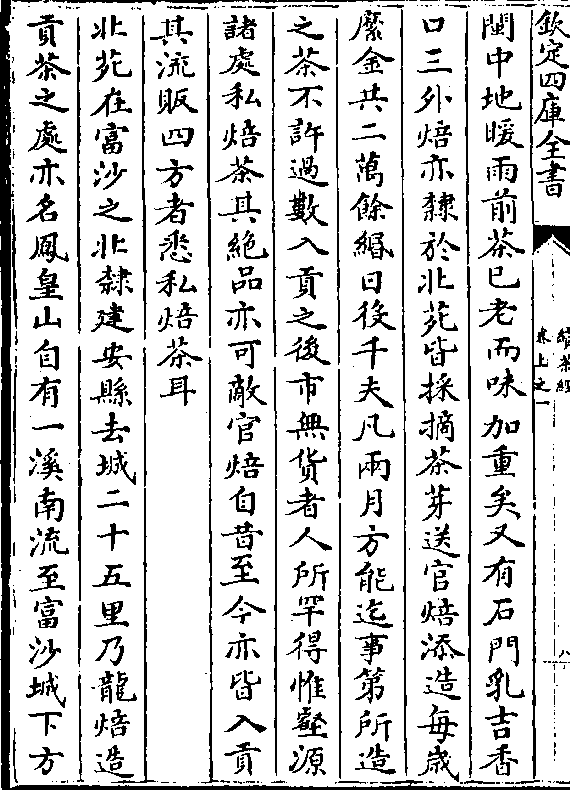 欽定四庫全書
續茶經
卷上之一
八
閩中地暖雨前茶已老而味加重矣又有石門乳吉香
口三外焙亦隸於北苑皆採摘茶芽送官焙添造每歳
縻金共二萬餘緡日役千夫凡兩月方能迄事第所造
之茶不許過數入貢之後市無貨者人所罕得惟壑源
諸處私焙茶其絶品亦可敵官焙自昔至今亦皆入貢
其流販四方者悉私焙茶耳
北苑在富沙之北隸建安縣去城二十五里乃龍焙造
貢茶之處亦名鳳皇山自有一溪南流至富沙城下方